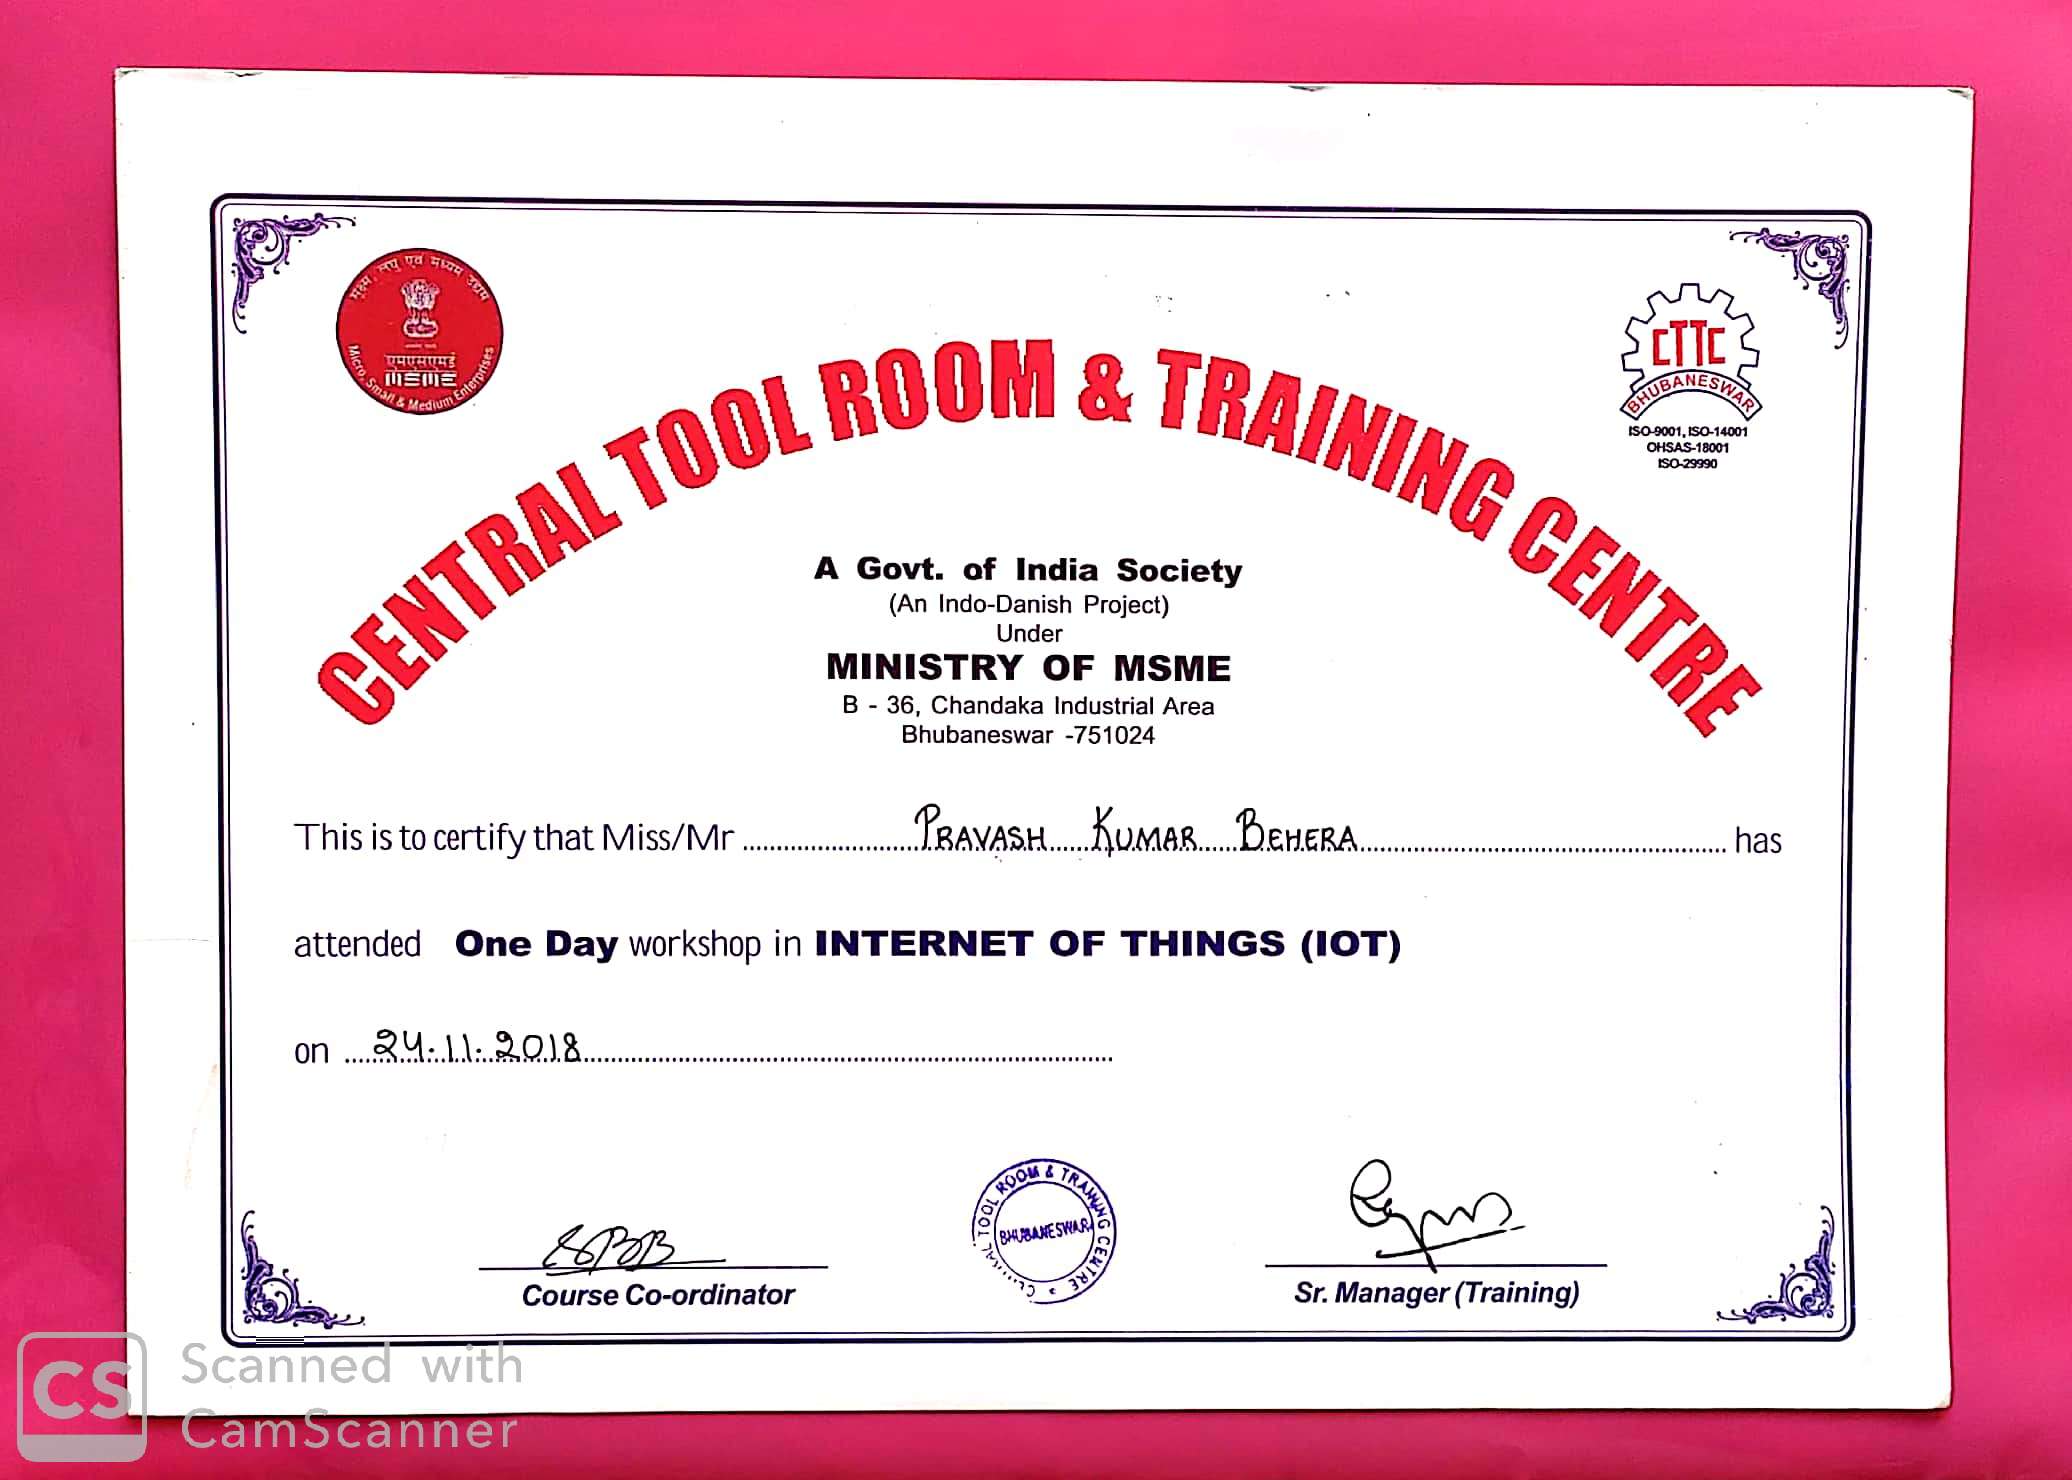 सूक्ष्म, लघु एवं मध्यम उद्यम
एमएसएमई
MSME
Micro, Small & Medium Enterprises
CTTC
BHUBANESWAR
ISO-9001, ISO-14001
OHSAS-18001
ISO-29990
CENTRAL TOOL ROOM & TRAINING CENTRE
A Govt. of India Society
(An Indo-Danish Project)
Under
MINISTRY OF MSME
B - 36, Chandaka Industrial Area
Bhubaneswar -751024
This is to certify that Miss/Mr PRAVASH KUMAR BEHERA has
attended One Day workshop in INTERNET OF THINGS (IOT)
on 24.11.2018
CENTRAL TOOL ROOM & TRAINING CENTRE
BHUBANESWAR
Course Co-ordinator
Sr. Manager (Training)
CS Scanned with
CamScanner